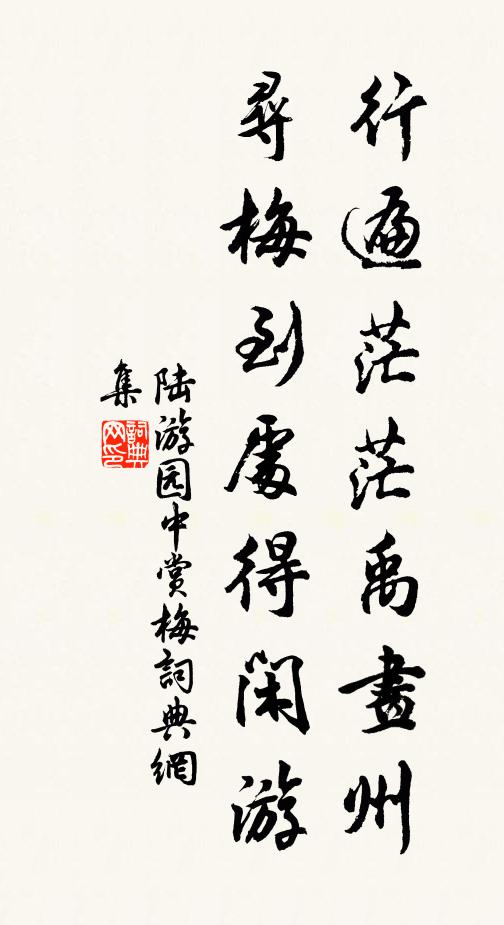 行遍茫茫禹畫州
尋梅到處得閑游
陆游园中赏梅詞典網
集
詞典网印